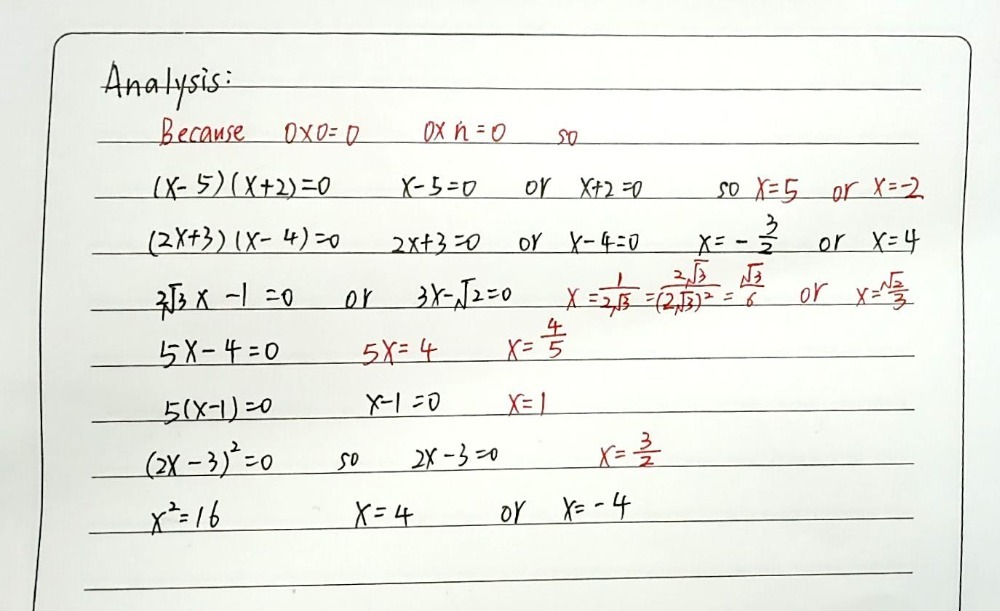 Analysis:
Because 0×0=0 0×n=0 so
(x-5)(x+2)=0 x-5=0 or x+2=0 so x=5 or x=-2
(2x+3)(x-4)=0 2x+3=0 or x-4=0 x=-3/2 or x=4
2√3x-1=0 or 3x-√2=0 x=1/2√3=2√3/(2√3)²=√3/6 or x=√2/3
5x-4=0 5x=4 x=4/5
5(x-1)=0 x-1=0 x=1
(2x-3)²=0 so 2x-3=0 x=3/2
x²=16 x=4 or x=-4